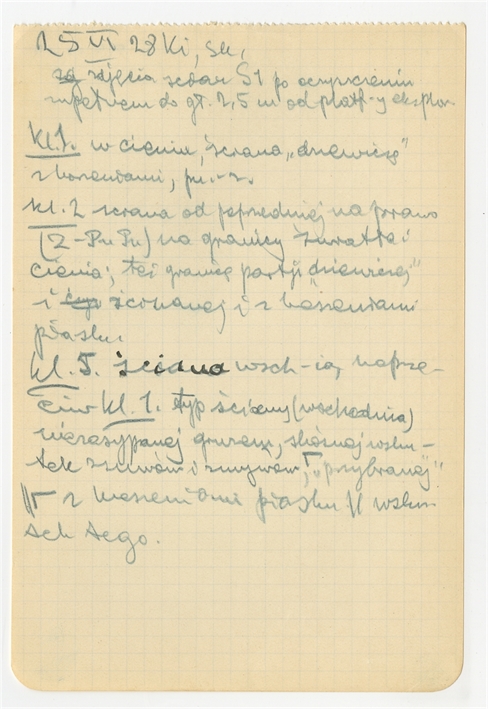 25 VI 28 Ki, Su,
zdjęcia ścian S1 po oczyszczeniu
zupełnem do gł. 2,5 m od platf-y eksplor
kl. 1. w cieniu, ściana „dziewicza"
z koszeniami, pn.
kl. 2 ściana od poprzedniej na prawo
(Z-Pn Pn) na granicy światła i
cienia; też granice partji „dziewiczej"
i ścionanej i z
piasku.
kl. 5. ściana wsch-ia, naprze-
ciw kl. 1. typ ściany (wschodnia)
niezasypanej gruzem, skośnej wsku-
tek zsuwów i zmywów, „przybranej"
z piasku // wsku
tek tego.